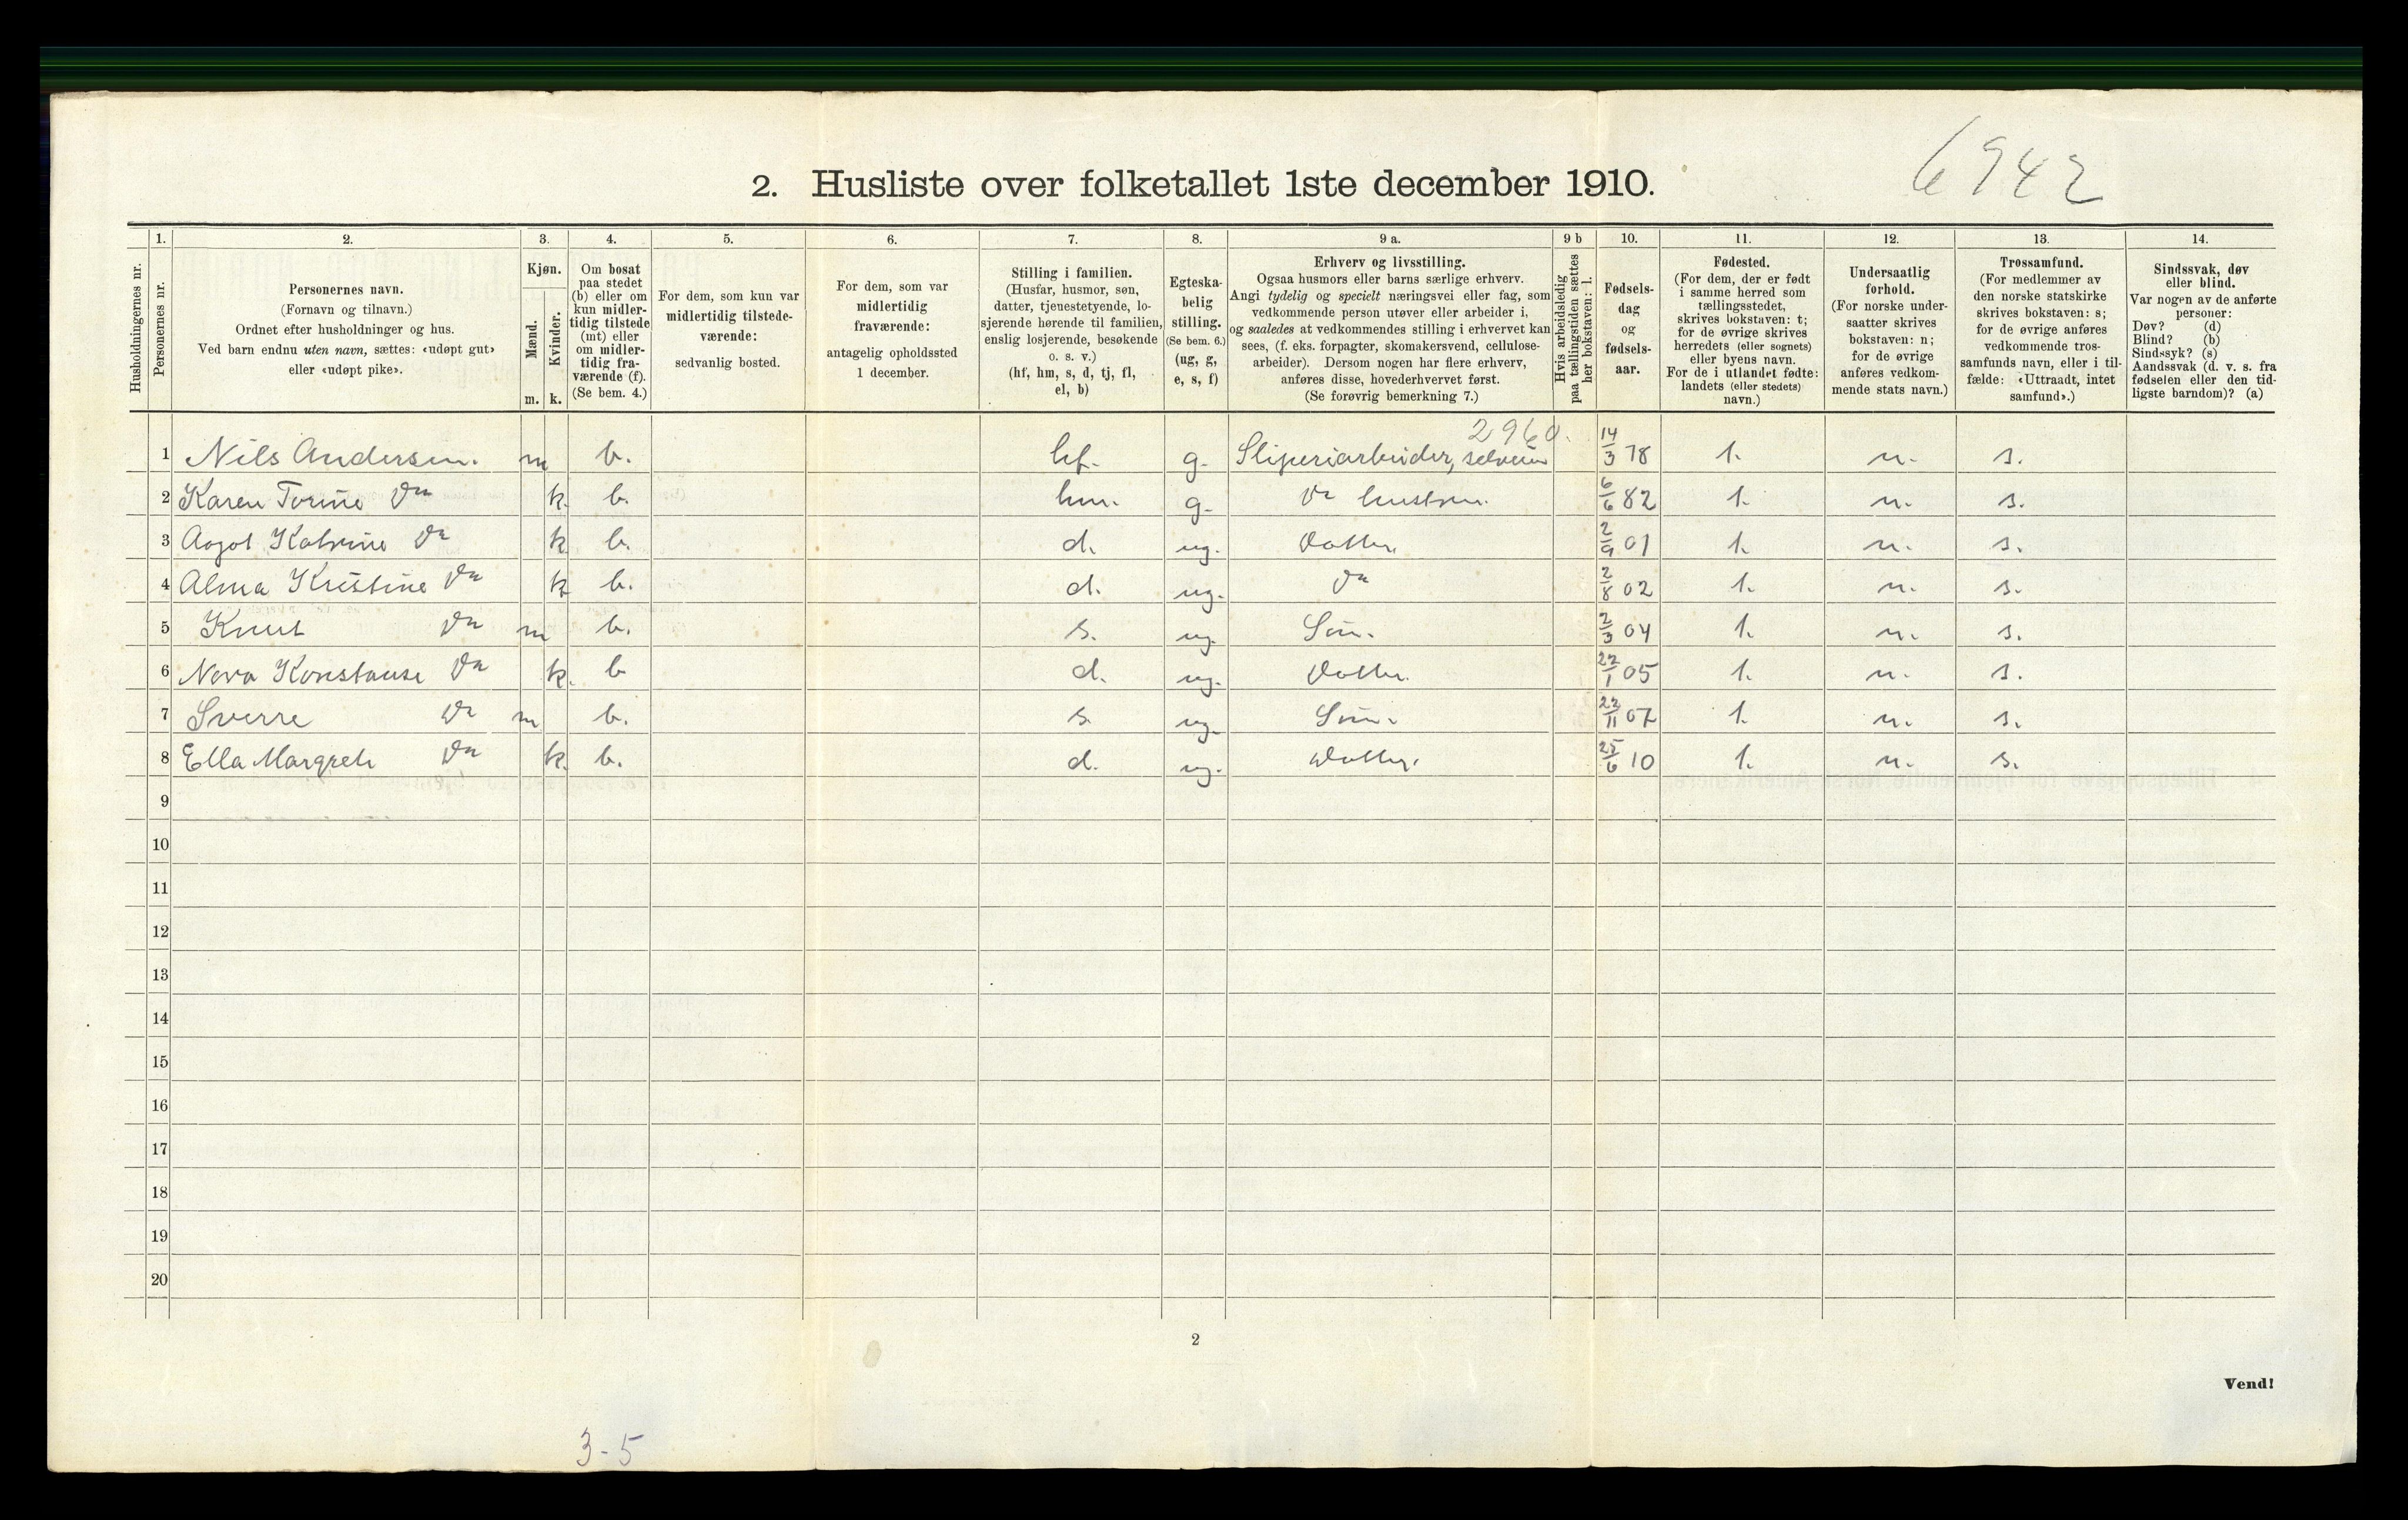 6942
2. Husliste over folketallet 1ste december 1910.
Husholdningernes nr.
1.
Personernes nr.
2.
Personernes navn.
(Fornavn og tilnavn.)
Ordnet efter husholdninger og hus.
Ved barn endnu uten navn, sættes: «udøpt gut»
eller «udøpt pike».
3.
Kjøn.
Mænd.
Kvinder.
m. k.
4.
Om bosat
paa stedet
(b) eller om
kun midler-
tidig tilstede
(mt) eller
om midler-
tidig fra-
værende (f).
(Se bem. 4.)
5.
For dem, som kun var
midlertidig tilstede-
værende:
sedvanlig bosted.
6.
For dem, som var
midlertidig
fraværende:
antagelig opholdssted
1 december.
7.
Stilling i familien.
(Husfar, husmor, søn,
datter, tjenestetyende, lo-
sjerende hørende til familien,
enslig losjerende, besøkende
o. s. v.)
(hf, hm, s, d, tj, fl,
el, b)
8.
Egteska-
belig
stilling.
(Se bem. 6.)
(ug, g,
e, s, f)
9 a.
Erhverv og livsstilling.
Ogsaa husmors eller barns særlige erhverv.
Angi tydelig og specielt næringsvei eller fag, som
vedkommende person utøver eller arbeider i,
og saaledes at vedkommendes stilling i erhvervet kan
sees, (f. eks. forpagter, skomakersvend, cellulose-
arbeider). Dersom nogen har flere erhverv,
anføres disse, hovederhvervet først.
(Se forøvrig bemerkning 7.)
9 b
Hvis arbeidsledig
paa tællingstiden sættes
her bokstaven: l.
10.
Fødsels-
dag
og
fødsels-
aar.
11.
Fødested.
(For dem, der er født
i samme herred som
tællingsstedet,
skrives bokstaven: t;
for de øvrige skrives
herredets (eller sognets)
eller byens navn.
For de i utlandet fødte:
landets (eller stedets)
navn.)
12.
Undersaatlig
forhold.
(For norske under-
saatter skrives
bokstaven: n;
for de øvrige
anføres vedkom-
mende stats navn.)
13.
Trossamfund.
(For medlemmer av
den norske statskirke
skrives bokstaven: s;
for de øvrige anføres
vedkommende tros-
samfunds navn, eller i til-
fælde: «Uttraadt, intet
samfund».)
14.
Sindssvak, døv
eller blind.
Var nogen av de anførte
personer:
Døv? (d)
Blind? (b)
Sindssyk? (s)
Aandssvak (d. v. s. fra
fødselen eller den tid-
ligste barndom)? (a)
2960.
1 Nils Andersen. m b. hf. g. Sliperiarbeider, selveier 14/3 78 t. n. s.
2 Karen Torine Do k. b. hm. g. Do hustru. 6/6 82 t. n. s.
3 Aagot Katrine Do k b. d. ug. Datter. 2/9 01 t. n. s.
4 Alma Kristine Do k b. d. ug. Do 2/8 02 t. n. s.
5 Knut Do m b. s. ug. Søn. 2/3 04 t. n. s.
6 Nora Konstanse Do k. b d. ug. Datter. 22/1 05 t. n. s.
7 Sverre Do m b. s. ug. Søn. 22/11 07 t. n. s.
8 Ella Margrete Do k. b. d. ug. Datter. 25/6 10 t. n. s.
9
10
11
12
13
14
15
16
17
18
19
20
2
Vend!
3-5